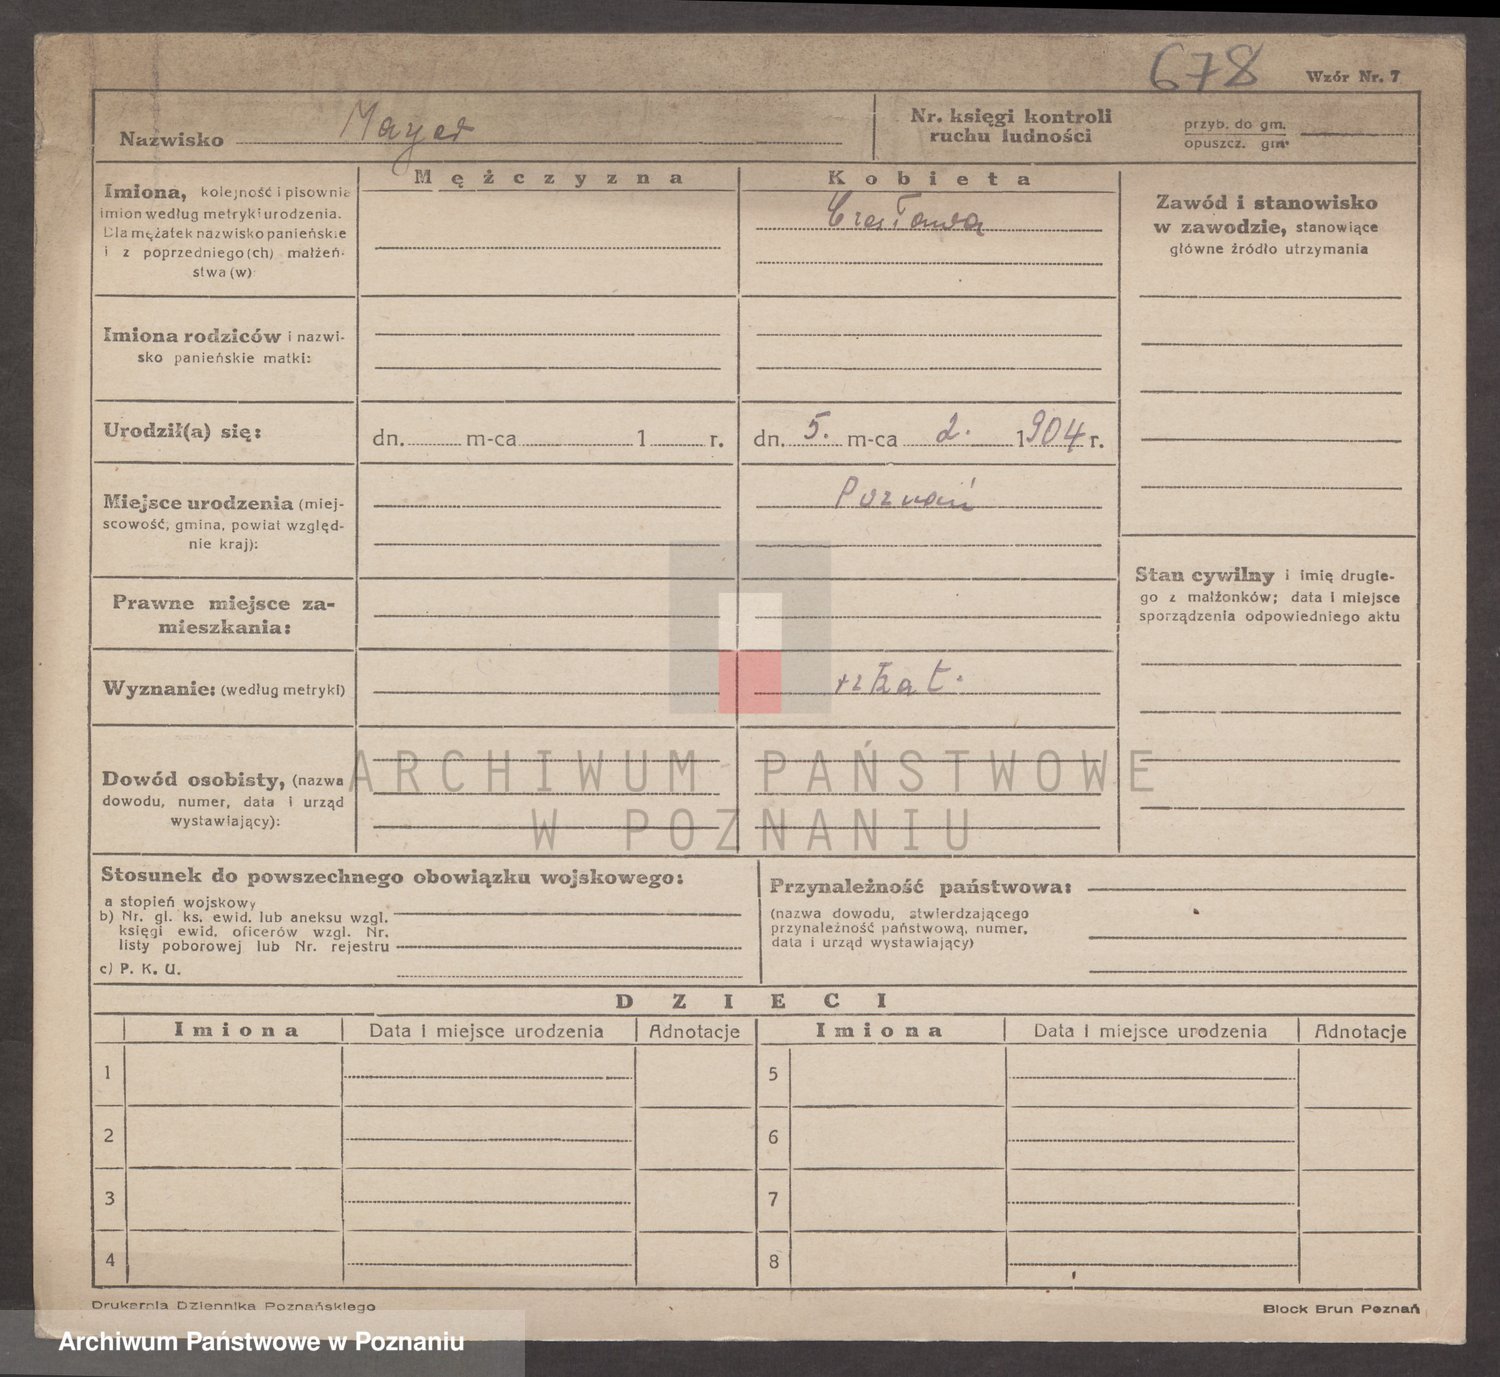 678
Wzór Nr. 7
Nazwisko Mayer
Nr. księgi kontroli ruchu ludności
przyb. do gm.
opuszcz. gm.
Imiona, kolejność i pisownia
imion według metryki urodzenia.
Dla mężatek nazwisko panieńskie
i z poprzedniego (ch) małżeń-
stwa (w)
Mężczyzna
Kobieta
Czesława
Zawód i stanowisko
w zawodzie, stanowiące
główne źródło utrzymania
Imiona rodziców i nazwi-
sko panieńskie matki:
Urodził(a) się:
dn. m-ca 1 r.
dn. 5. m-ca 2. 1904 r.
Miejsce urodzenia (miej-
scowość, gmina, powiat względ-
nie kraj):
Poznań
Stan cywilny i imię drugie-
go z małżonków; data i miejsce
sporządzenia odpowiedniego aktu
Prawne miejsce za-
mieszkania:
Wyznanie: (według metryki)
rzkat.
Dowód osobisty, (nazwa
dowodu, numer, data i urząd
wystawiający):
ARCHIWUM PAŃSTWOWE
W POZNANIU
Stosunek do powszechnego obowiązku wojskowego:
a stopień wojskowy
b) Nr. gl. ks. ewid. lub aneksu wzgl.
księgi ewid. oficerów wzgl. Nr.
listy poborowej lub Nr. rejestru
c) P. K. U.
Przynależność państwowa:
(nazwa dowodu, stwierdzającego
przynależność państwową, numer,
data i urząd wystawiający)
DZIECI
Imiona Data i miejsce urodzenia Adnotacje Imiona Data i miejsce urodzenia Adnotacje
1 5
2 6
3 7
4 8
Drukarnia Dziennika Poznańskiego
Block Brun Poznań
Archiwum Państwowe w Poznaniu